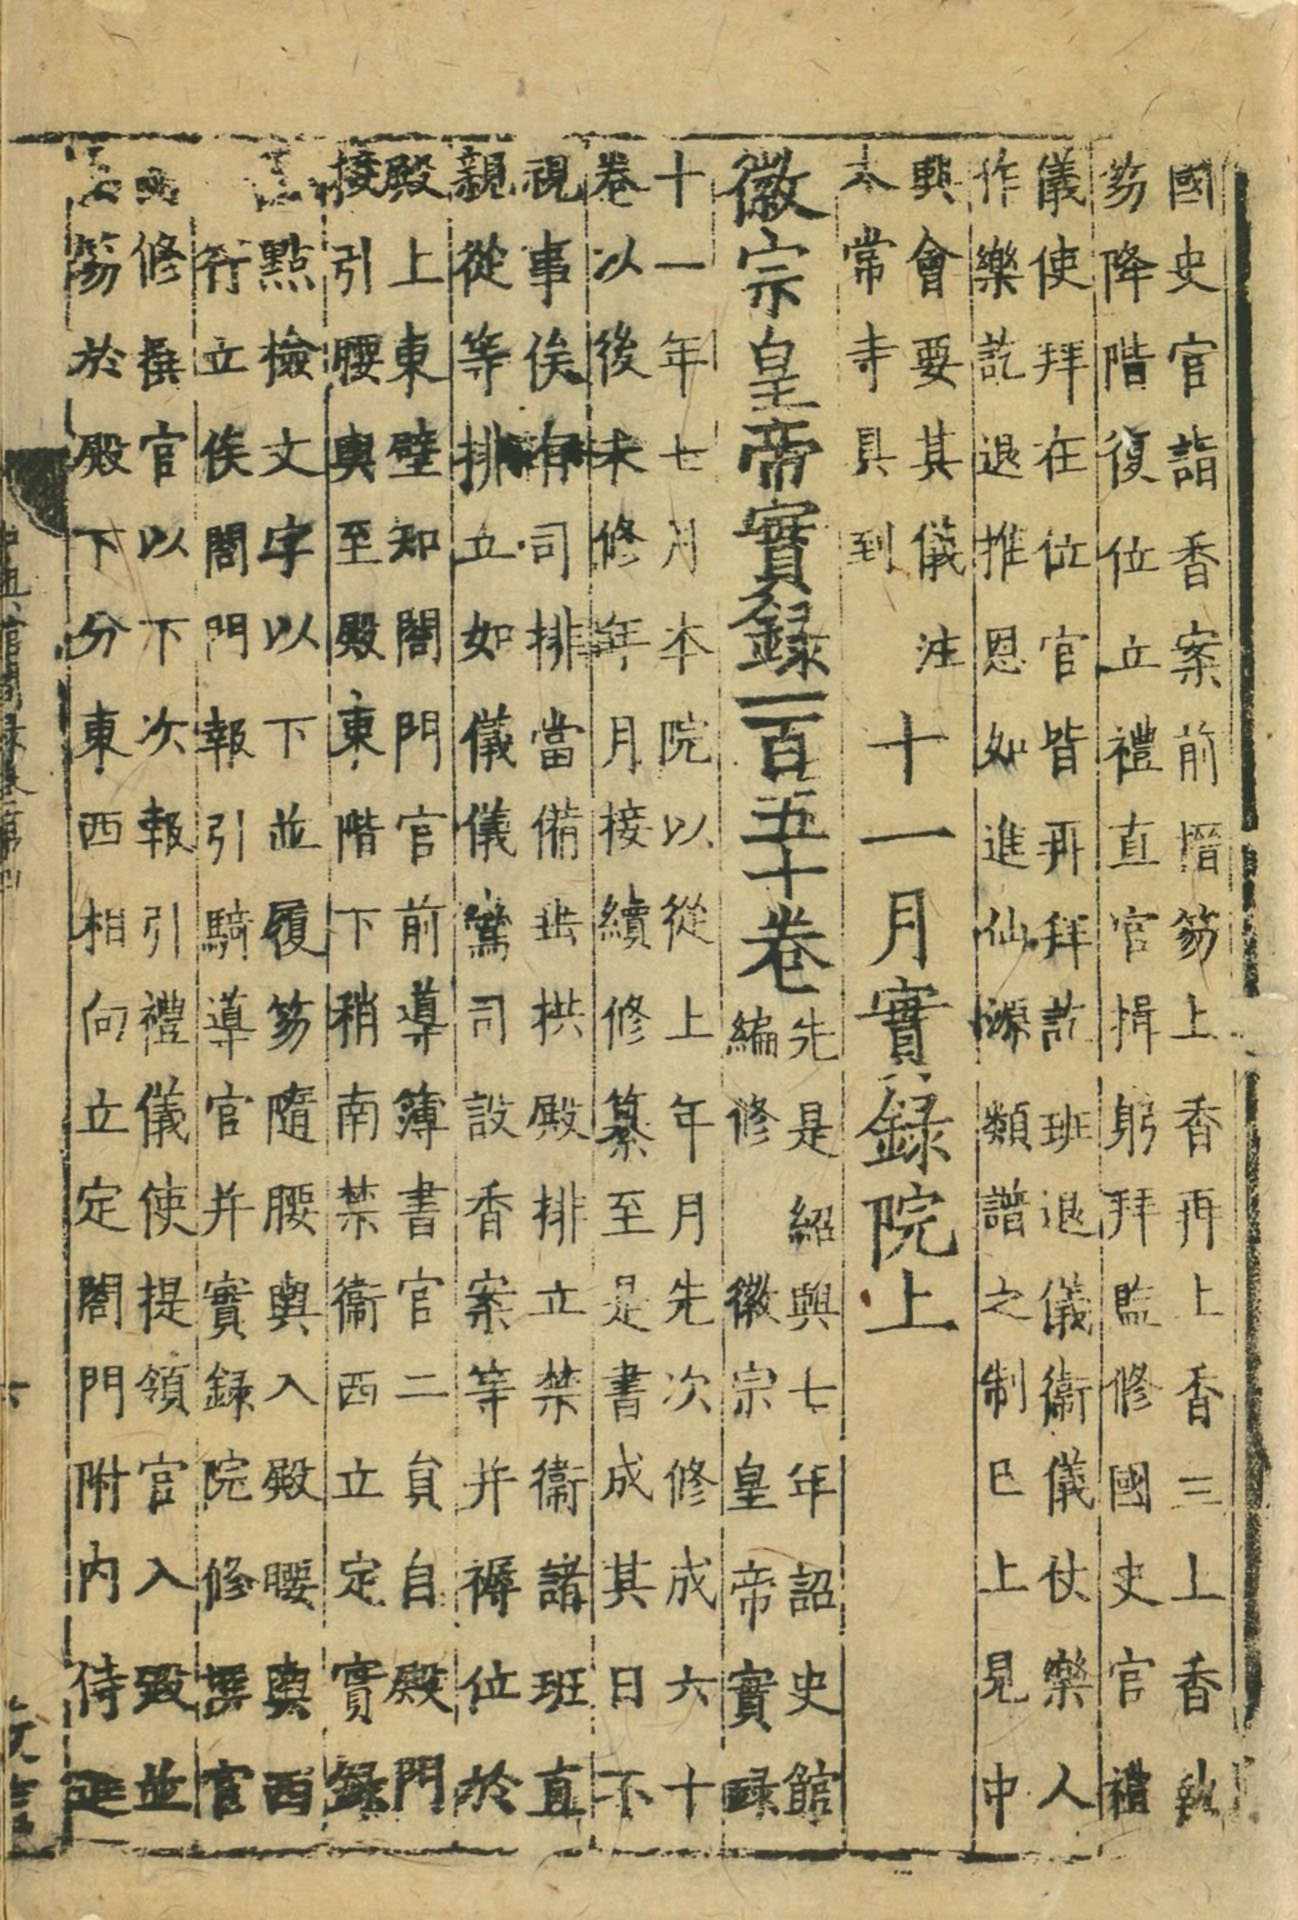 國史官詣香案前搢笏上香再上香三上香執
笏降階復位立禮直官揖躬拜監修國史官禮
儀使拜在位官皆再拜訖班退儀衞儀仗樂人
作樂訖退推恩如進仙源類譜之制巳上見中
興會要其儀注
太常寺具到
十一月實錄院上
徽宗皇帝實錄一百五十卷
先是紹興七年詔史館
編修徽宗皇帝實録
十一年七月本院以從上年月先次修成六十
卷以後未修年月接續修纂至是書成其日不
視事俟有司排當備出拱殿排立禁衞諸班直
親從等排立如儀儀鸞司設香案等并褥位於
殿上東壁知閤門官前導簿書官二員自殿門
接引腰輿至殿東階下稍南禁衞西立定實録
點檢文字以下並履笏隨腰輿入殿腰輿西
行立俟閤門報引騎導官并實録院修撰官
修撰官以下次報引禮儀使提領官入殿並
笏於殿下分東西相向立定閤門附内侍